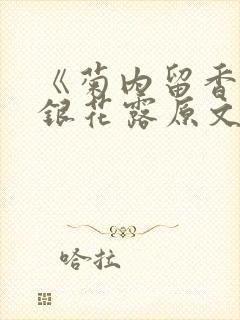 《菊内留香
銀花露原文
哈拉